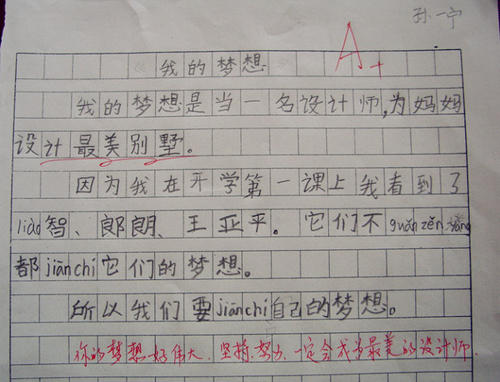 孙一宁
A+
我的梦想
我的梦想是当一名设计师,为妈妈
设计最美别墅。
因为我在开学第一课上我看到了
liào智、郎朗、王亚平。它们不guǎnzěnyàng
都jiānchí它们的梦想。
所以我们要jiānchí自己的梦想。
你的梦想好伟大,坚持,努力,一定会成为最美的设计师